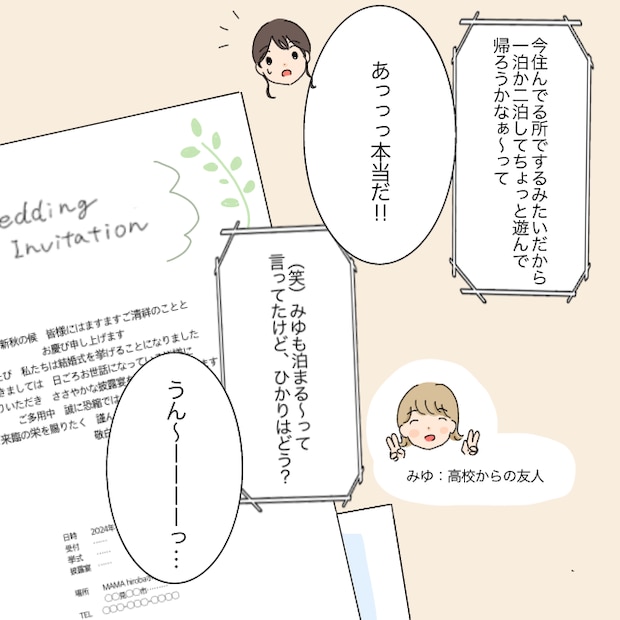 今住んでる所でするみたいだから
一泊か二泊してちょっと遊んで
帰ろうかなぁ〜って
あっっっ本当だ!!
(笑)みゆも泊まる〜って
言ってたけど、ひかりはどう?
うん〜ーーーっ…
みゆ：高校からの友人
edding
Invitation
新秋の候 皆様にはますますご清祥のことと
お慶び申し上げます
び 私たちは結婚式を挙げることになりました
きましては 日ごろお世話になっている
りいただき ささやかな披露宴 ます
ご多用中 誠に恐縮では
来臨の栄を賜りたく 謹ん
敬白
日時 2024年
受付 ……
挙式 ……
披露宴 ……
場所 MAMA hiroba
〇〇見〇〇市
TEL 〇〇〇-〇〇〇-〇〇〇〇